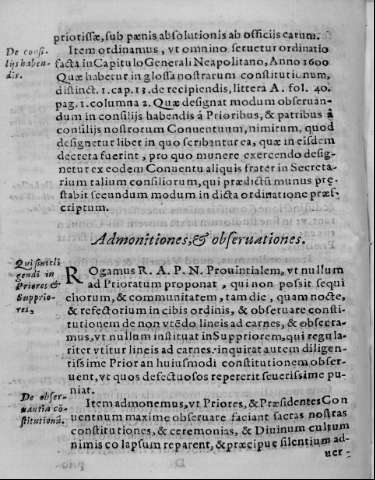 priorissæ, sub pænis absolutionis ab officiis earum.
De consi-
liis haben-
dis.
Item ordinamus, vt omnino seruetur ordinatio
facta in Capitulo Generali Neapolitano, Anno 1600
Quæ habetur in glossa nostrarum constitutionum,
distinct. 1. cap. 13. de recipiendis, littera A. fol. 40.
pag. 1. columna 2. Quæ designat modum obseruan-
dum in consilijs habendis á Prioribus, & patribus à
consilijs nostrorum Conuentuum, nimirum, quod
designetur liber in quo scribantur ea, quæ in eisdem
decreta fuerint, pro quo munere exercendo desig-
netur ex eodem Conuentu aliquis frater in Secreta-
rium talium consiliorum, qui prædictũ munus prę-
stabit secundum modum in dicta ordinatione præs-
criptum.
Admonitiones, & obseruationes.
Qui sint eli
gendi in
Priores &
Supprio-
res,
ROgamus R. A. P. N. Prouintialem, vt nullum
ad Prioratum proponat, qui non possit sequi
chorum, & communitatem, tam die, quam nocte,
& refectorium in cibis ordinis, & obseruare consti-
tutionem de non vtẽdo lineis ad carnes, & obsecra-
mus, vt nullum instituat in Suppriorem, qui regula-
riter vtitur lineis ad carnes. inquirat autem diligen-
tissime Prior an huiusmodi constitutionem obser-
uent, vt quos defectuosos repererit seuerissime pu-
niat.
De obser-
uantia cõ-
stitutionũ.
Item admonemus, vt Priores, & Præsidentes Con
uentuum maxime obseruare faciant sacras nostras
constitutiones, & ceremonias, & Diuinum cultum
nimis co lapsum reparent, & præcipue silentium ad-
uer-